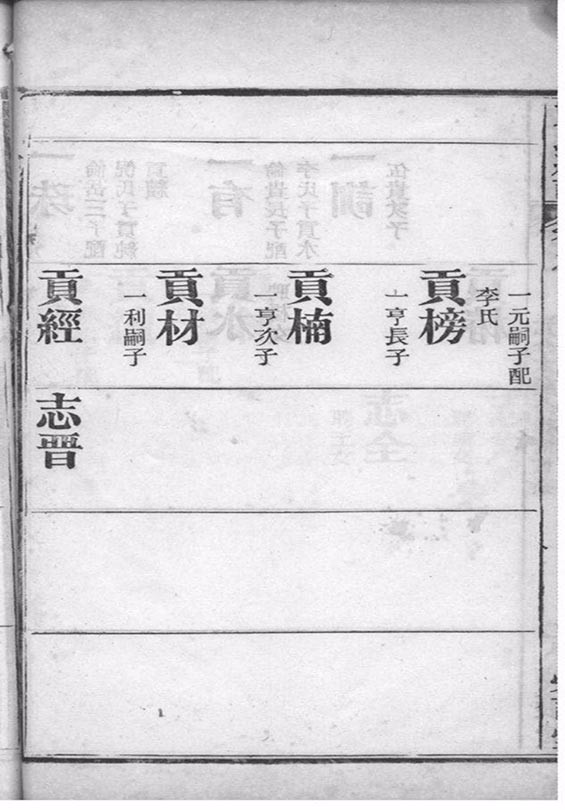 一元嗣子配
李氏
貢榜
一亨長子
貢楠
一亨次子
貢材
一利嗣子
貢經
志晋